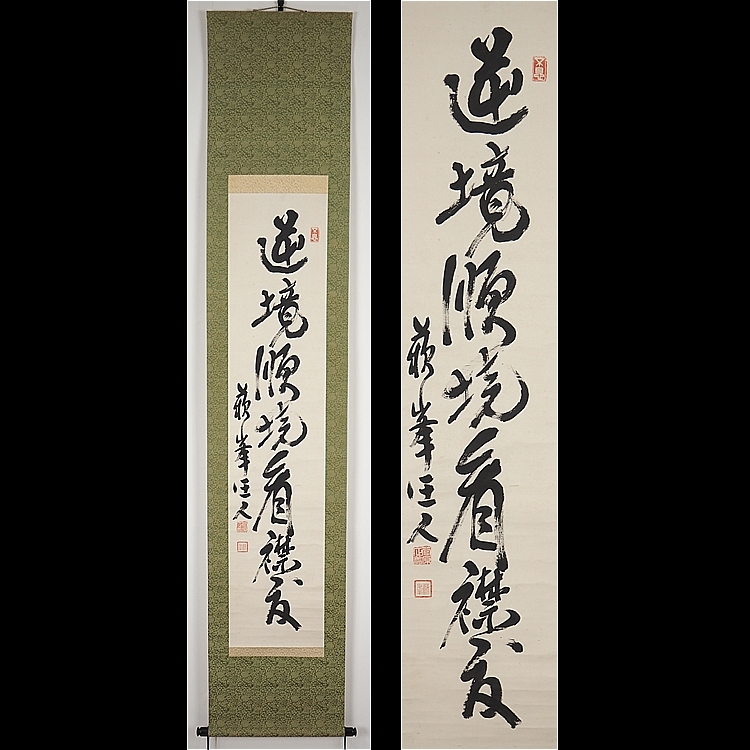 逆境順境看襟度
蘇峯人
逆境順境看襟度
蘇峯人